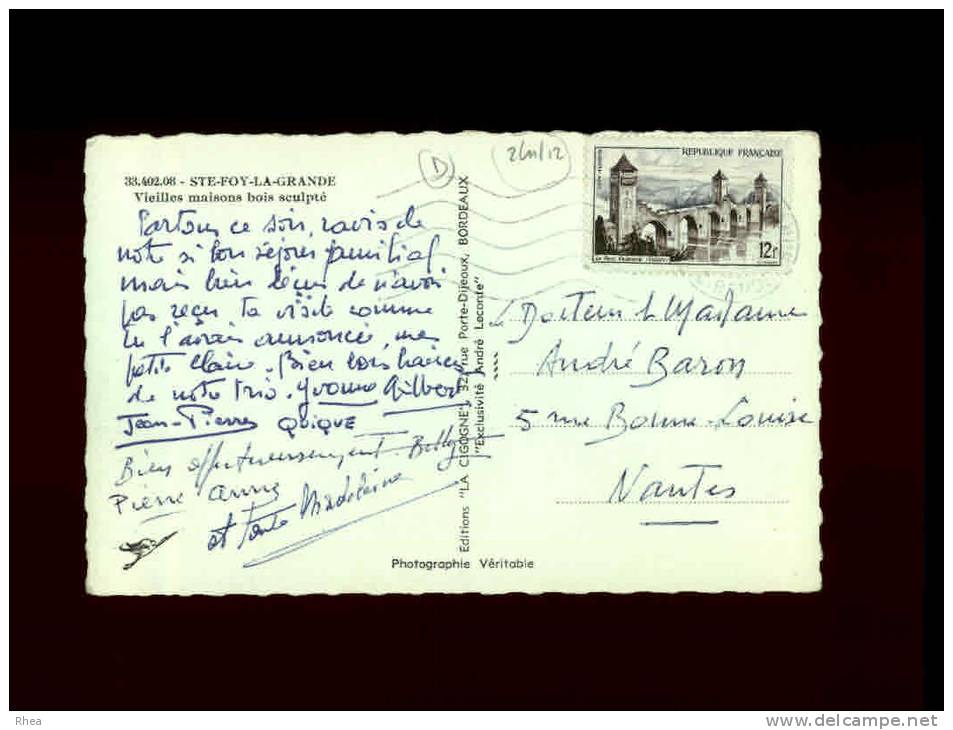 33.402.08 - STE-FOY-LA-GRANDE
Vieilles maisons bois sculpté
D
REPUBLIQUE FRANÇAISE
12F
Partons ce soir, ravis de
notre si bon séjour familial
mais bien déçus de n'avoir
pas reçu ta visite comme
tu l'avais annoncée, ma
petite Claire. Bien bons baisers
de notre trio. Yvonne Gilbert
Jean-Pierre QUIQUE
Bien affectueusement Betty
Pierre Anne
et Tante Madeleine
Editions "LA CIGOGNE", 32, rue Porte-Dijeaux, BORDEAUX
"Exclusivité André Leconte"
Docteur & Madame
André Baron
5 rue Bonne-Louise
Nantes
Photographie Véritable
Rhea
www.delcampe.net